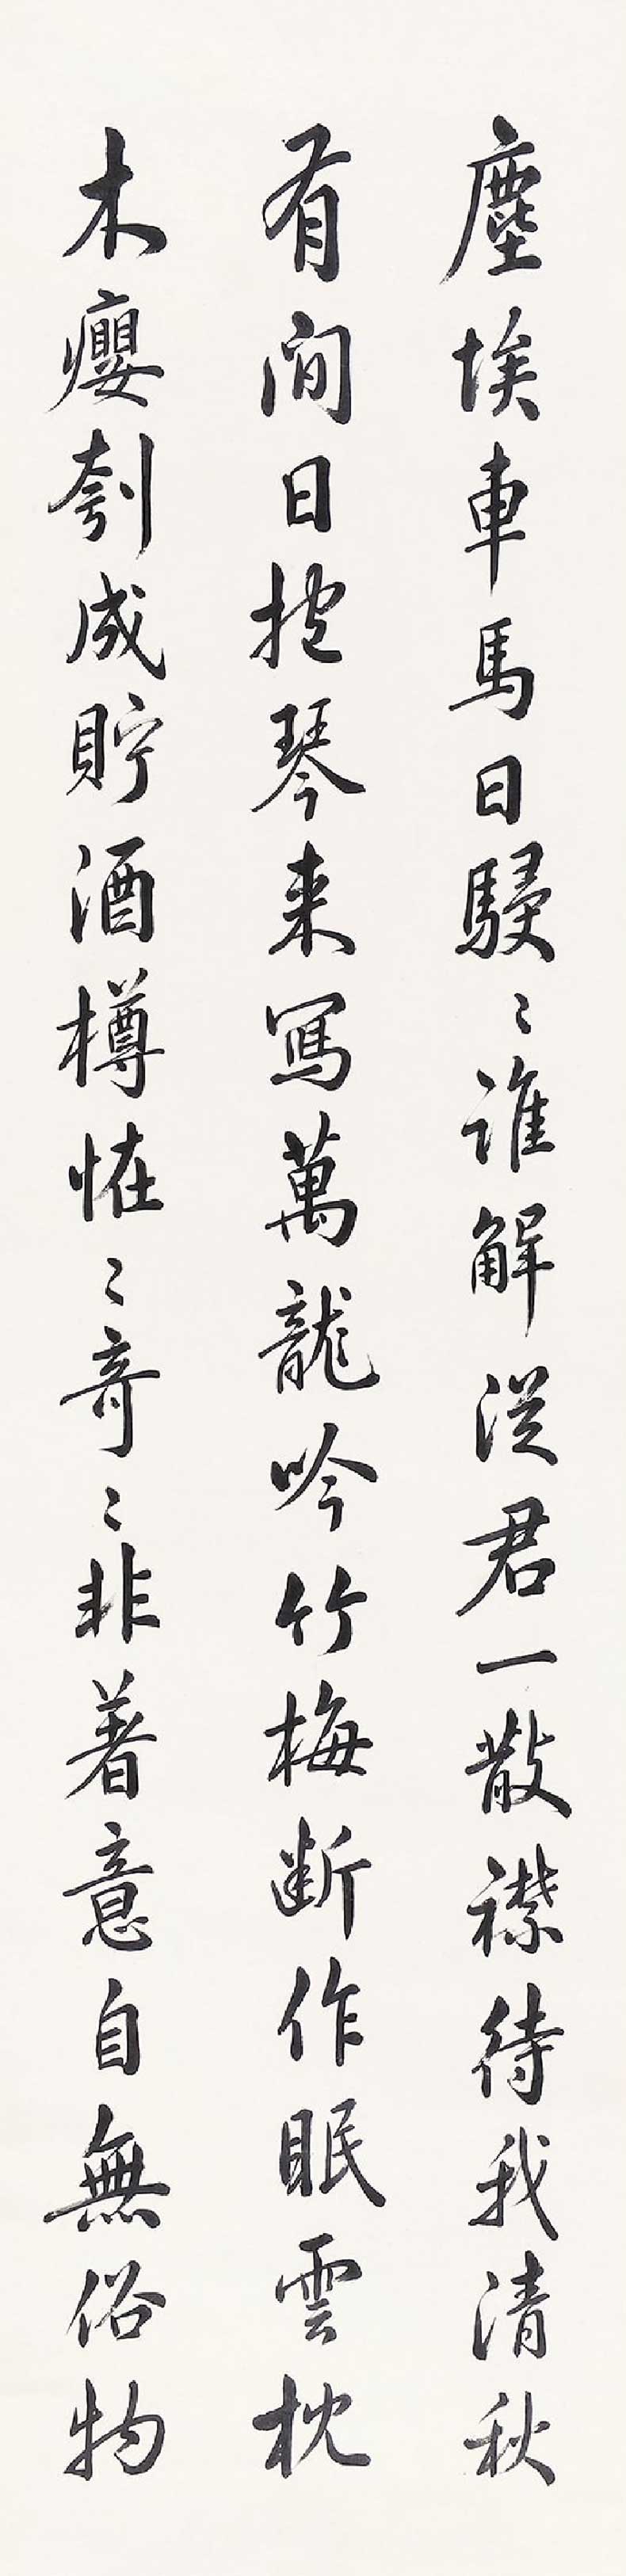 塵埃車馬日駸〻誰解從君一散襟待我清秋
有間日抱琴来寫萬龍吟竹梅断作眠雲枕
木癭刳成貯酒樽恠〻奇〻非著意自無俗物